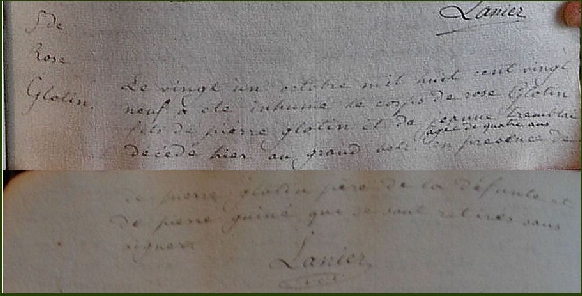 Lanier
S. de
Rose
Glotin.
Le vingt un octobre mil huit cent vingt
neuf a ete inhumé le corps de rose Glotin
fils de pierre glotin et de jeanne tremblai
agée de quatre ans
décédé hier au grand en presence de
pierre glotin père de la défunte et
de pierre guiné qui se sont retirés sans
signer.
Lanier